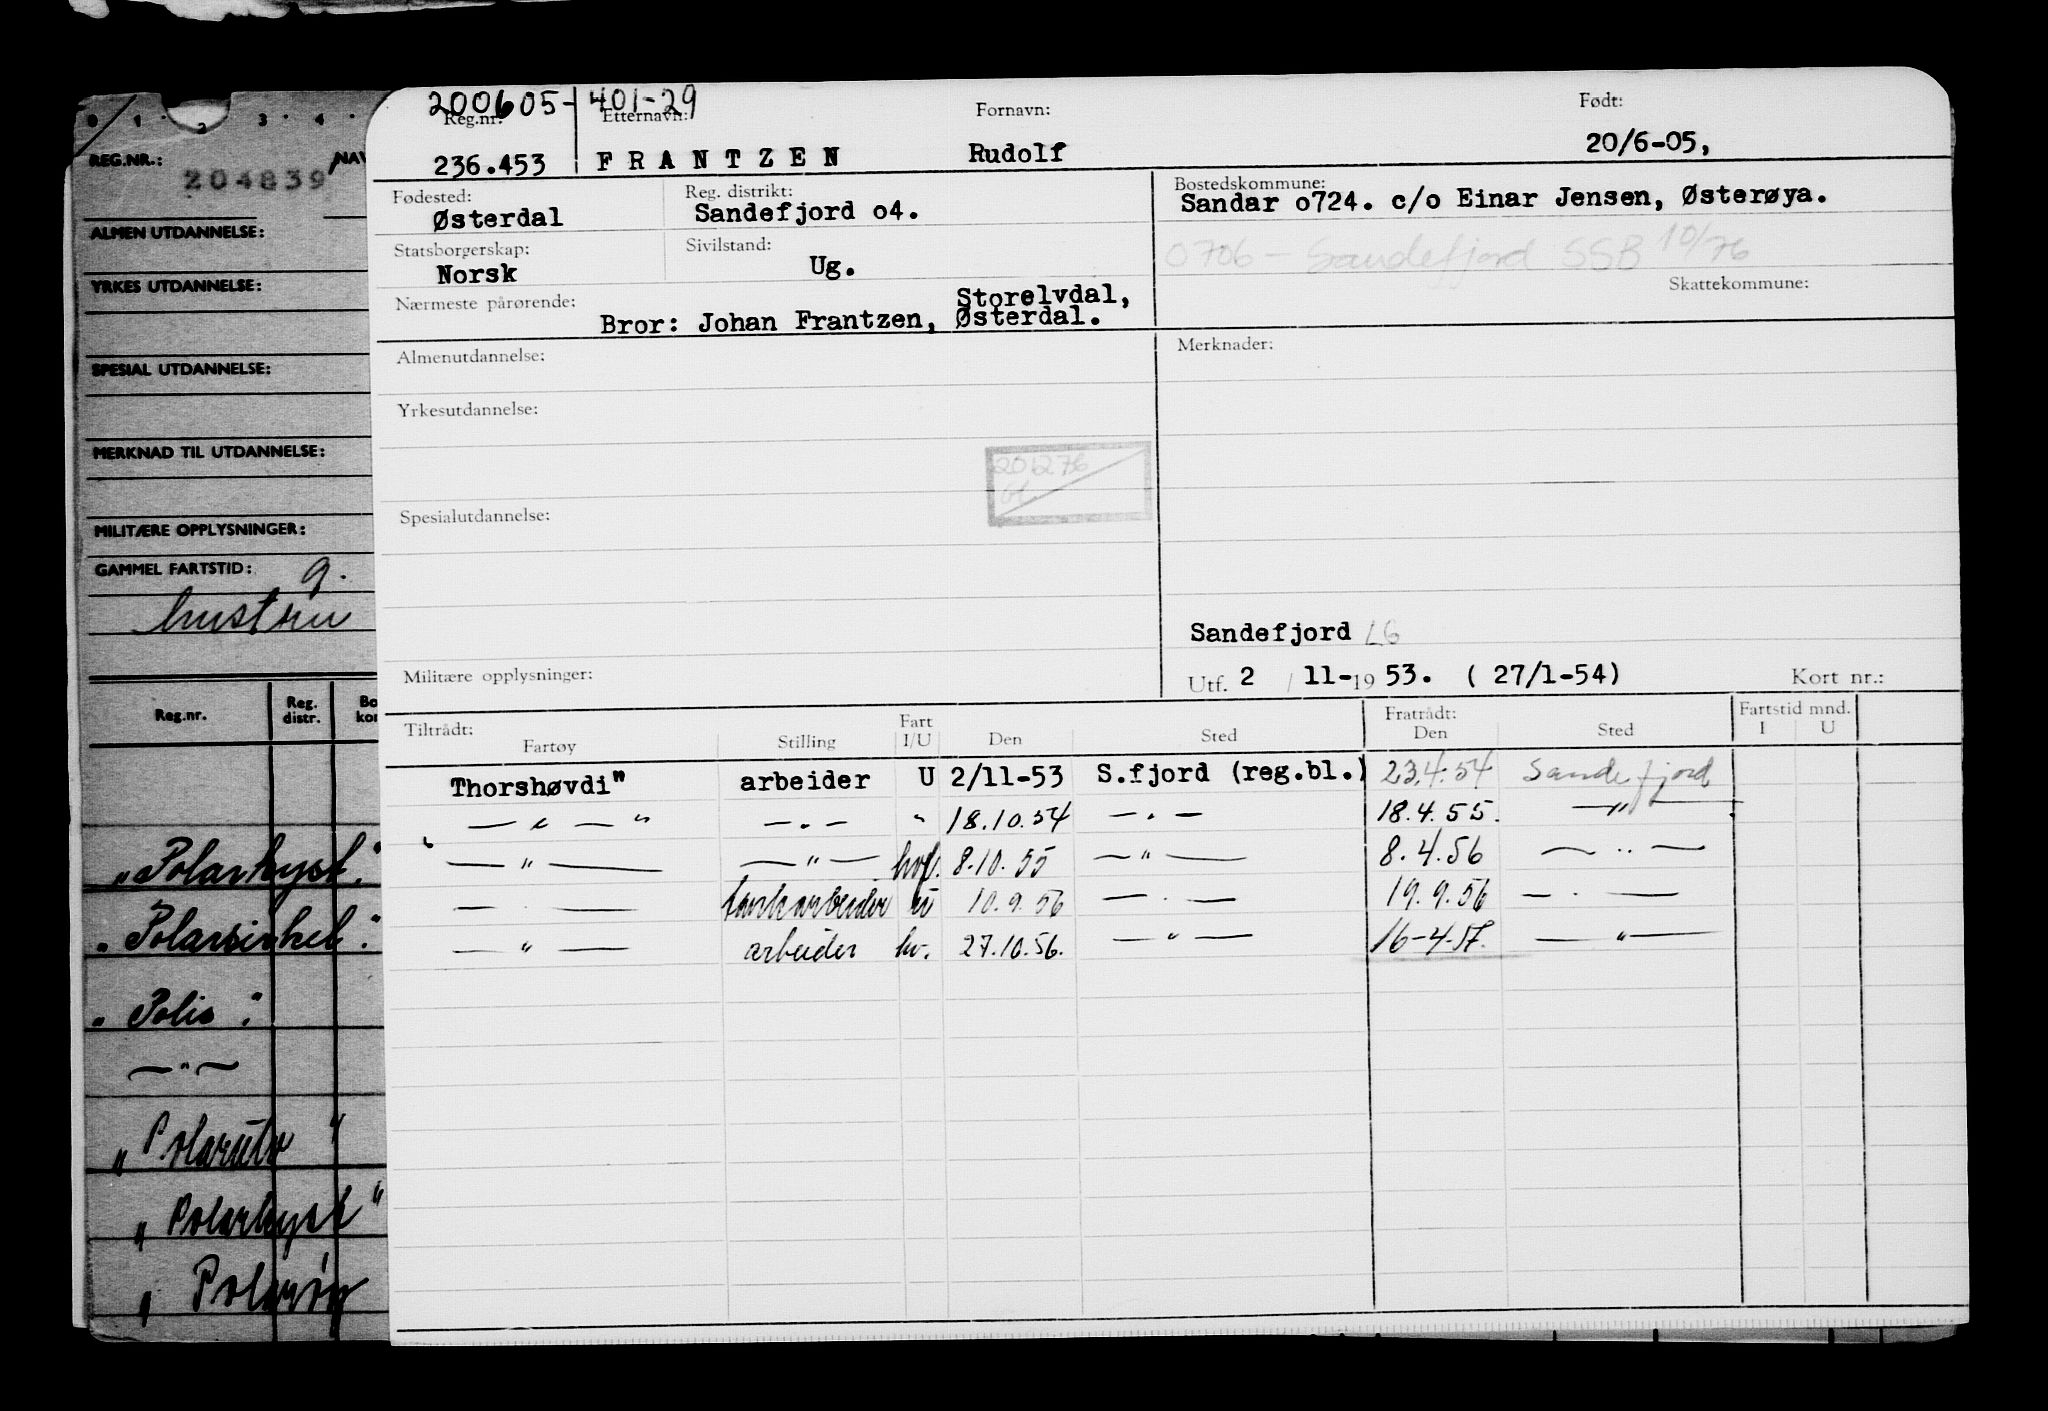 0 1 2 3 4
REG.NR.: NAV
204839
ALMEN UTDANNELSE:
YRKES UTDANNELSE:
SPESIAL UTDANNELSE:
MERKNAD TIL UTDANNELSE:
MILITÆRE OPPLYSNINGER:
GAMMEL FARTSTID: 9.
Reg.nr. Reg. distr. Bo kor
"Polarkyst."
"Polarsirkel".
"Polis".
— " —
"
"Polarkyst"
" Polarøy
200605-401-29
Reg.nr. Etternavn: Fornavn: Født:
236.453 FRANTZEN Rudolf 20/6-05,
Fødested: Reg. distrikt: Bostedskommune:
Østerdal Sandefjord o4. Sandar o724. c/o Einar Jensen, Østerøya.
Statsborgerskap: Sivilstand: 0706 - Sandefjord SSB 10/76
Norsk Ug.
Nærmeste pårørende: Skattekommune:
Storelvdal,
Bror: Johan Frantzen, Østerdal.
Almenutdannelse: Merknader:
Yrkesutdannelse:
201276
Spesialutdannelse:
Sandefjord LG
Militære opplysninger: Utf. 2 / 11-19 53. ( 27/1-54) Kort nr.:
Tiltrådt: Fart Fratrådt: Fartstid mnd.
Fartøy Stilling I/U Den Sted Den Sted I U
Thorshøvdi" arbeider U 2/11-53 S.fjord (reg.bl.) 23.4.54 Sandefjord
— " — " — " — " 18.10.54 — " — 18.4.55. — " —
— " — — " — hvf. 8.10.55 — " — 8.4.56 — " —
— " — tankarbeider u 10.9.56 — " — 19.9.56 — " —
— " — arbeider hv. 27.10.56. — " — 16-4-57. — " —